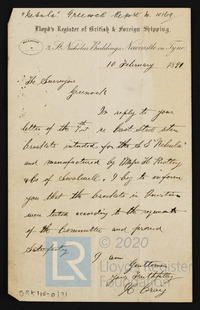 "Nebula" Greenock Report No 10169
Lloyd's Register of British & Foreign Shipping,
3, St. Nicholas Buildings, Newcastle on Tyne,
10 February 1891
The Surveyors
Greenock
In reply to your
letter of the 7th Inst re cast steel stern
brackets intended for the S.S. "Nebula"
and manufactured by Messrs
& Co of I beg to inform
you that the brackets in question
were tested according to the requirements
of the Committee and proved
satisfactory
I am Gentlemen
Yours faithfully
© 2020
Lloyd's Register
Foundation